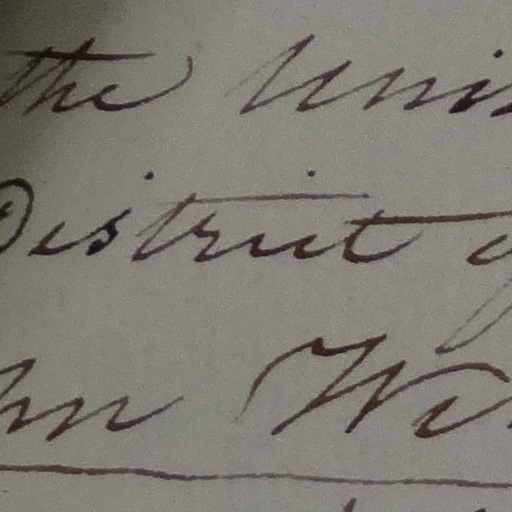 the Unis
District of
hn Wi